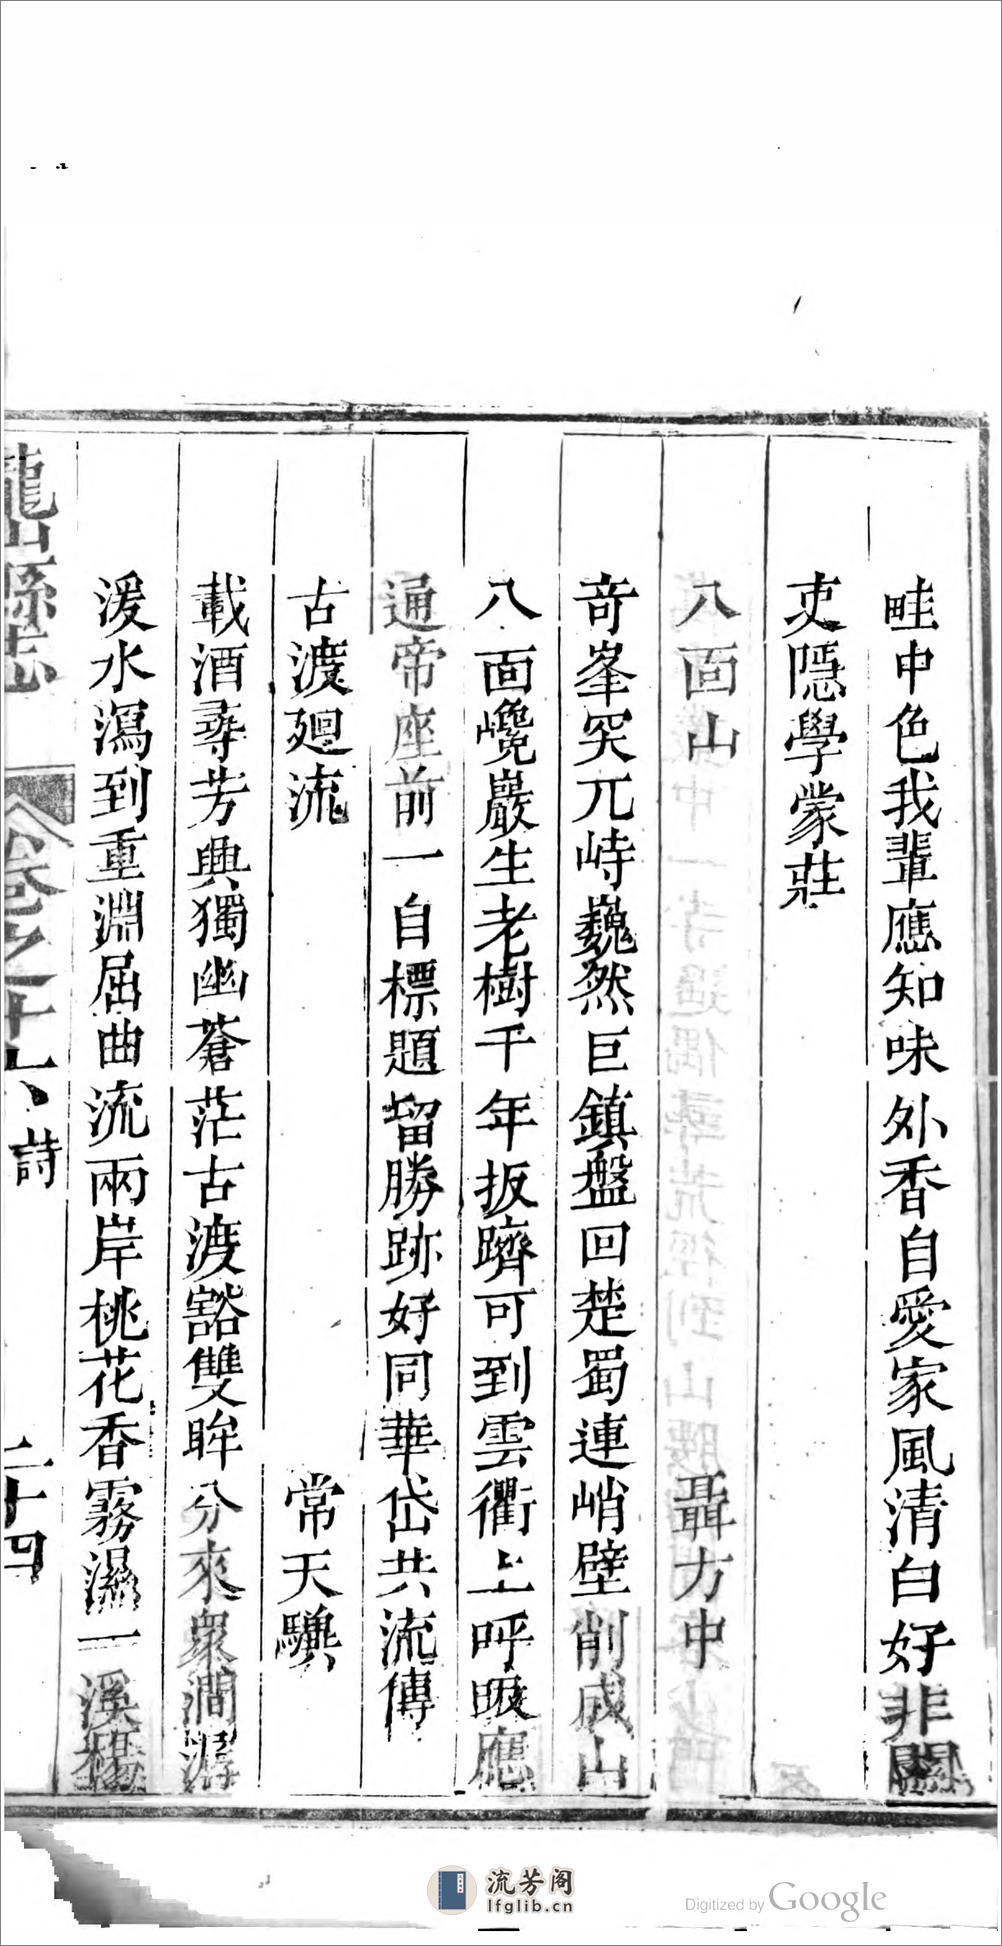 畦中色我輩應知味外香自愛家風清白好非關
吏隱學蒙莊
八面山　聶方中
奇峯突兀峙巍然巨鎮盤回楚蜀連峭壁削成山
八面巉巖生老樹千年扳躋可到雲衢上呼吸應
通帝座前一自標題留勝跡好同華岱共流傳
古渡廻流　常天騏
載酒尋芳興獨幽蒼茫古渡豁雙眸分來衆澗潺
湲水瀉到重淵屈曲流兩岸桃花香霧濕一溪楊
龍山縣志　卷之十六　詩　二十四
流芳阁
lfglib.cn
Digitized by Google